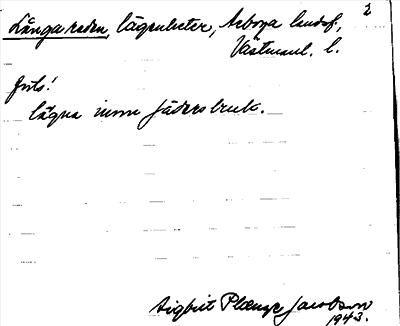 2
Långa raden, lägenheter, Arboga landsf.,
Västmanl. l.
fints!
lägna inom Jäders bruk.
Sigbrit Plænge Jacobson
1943.